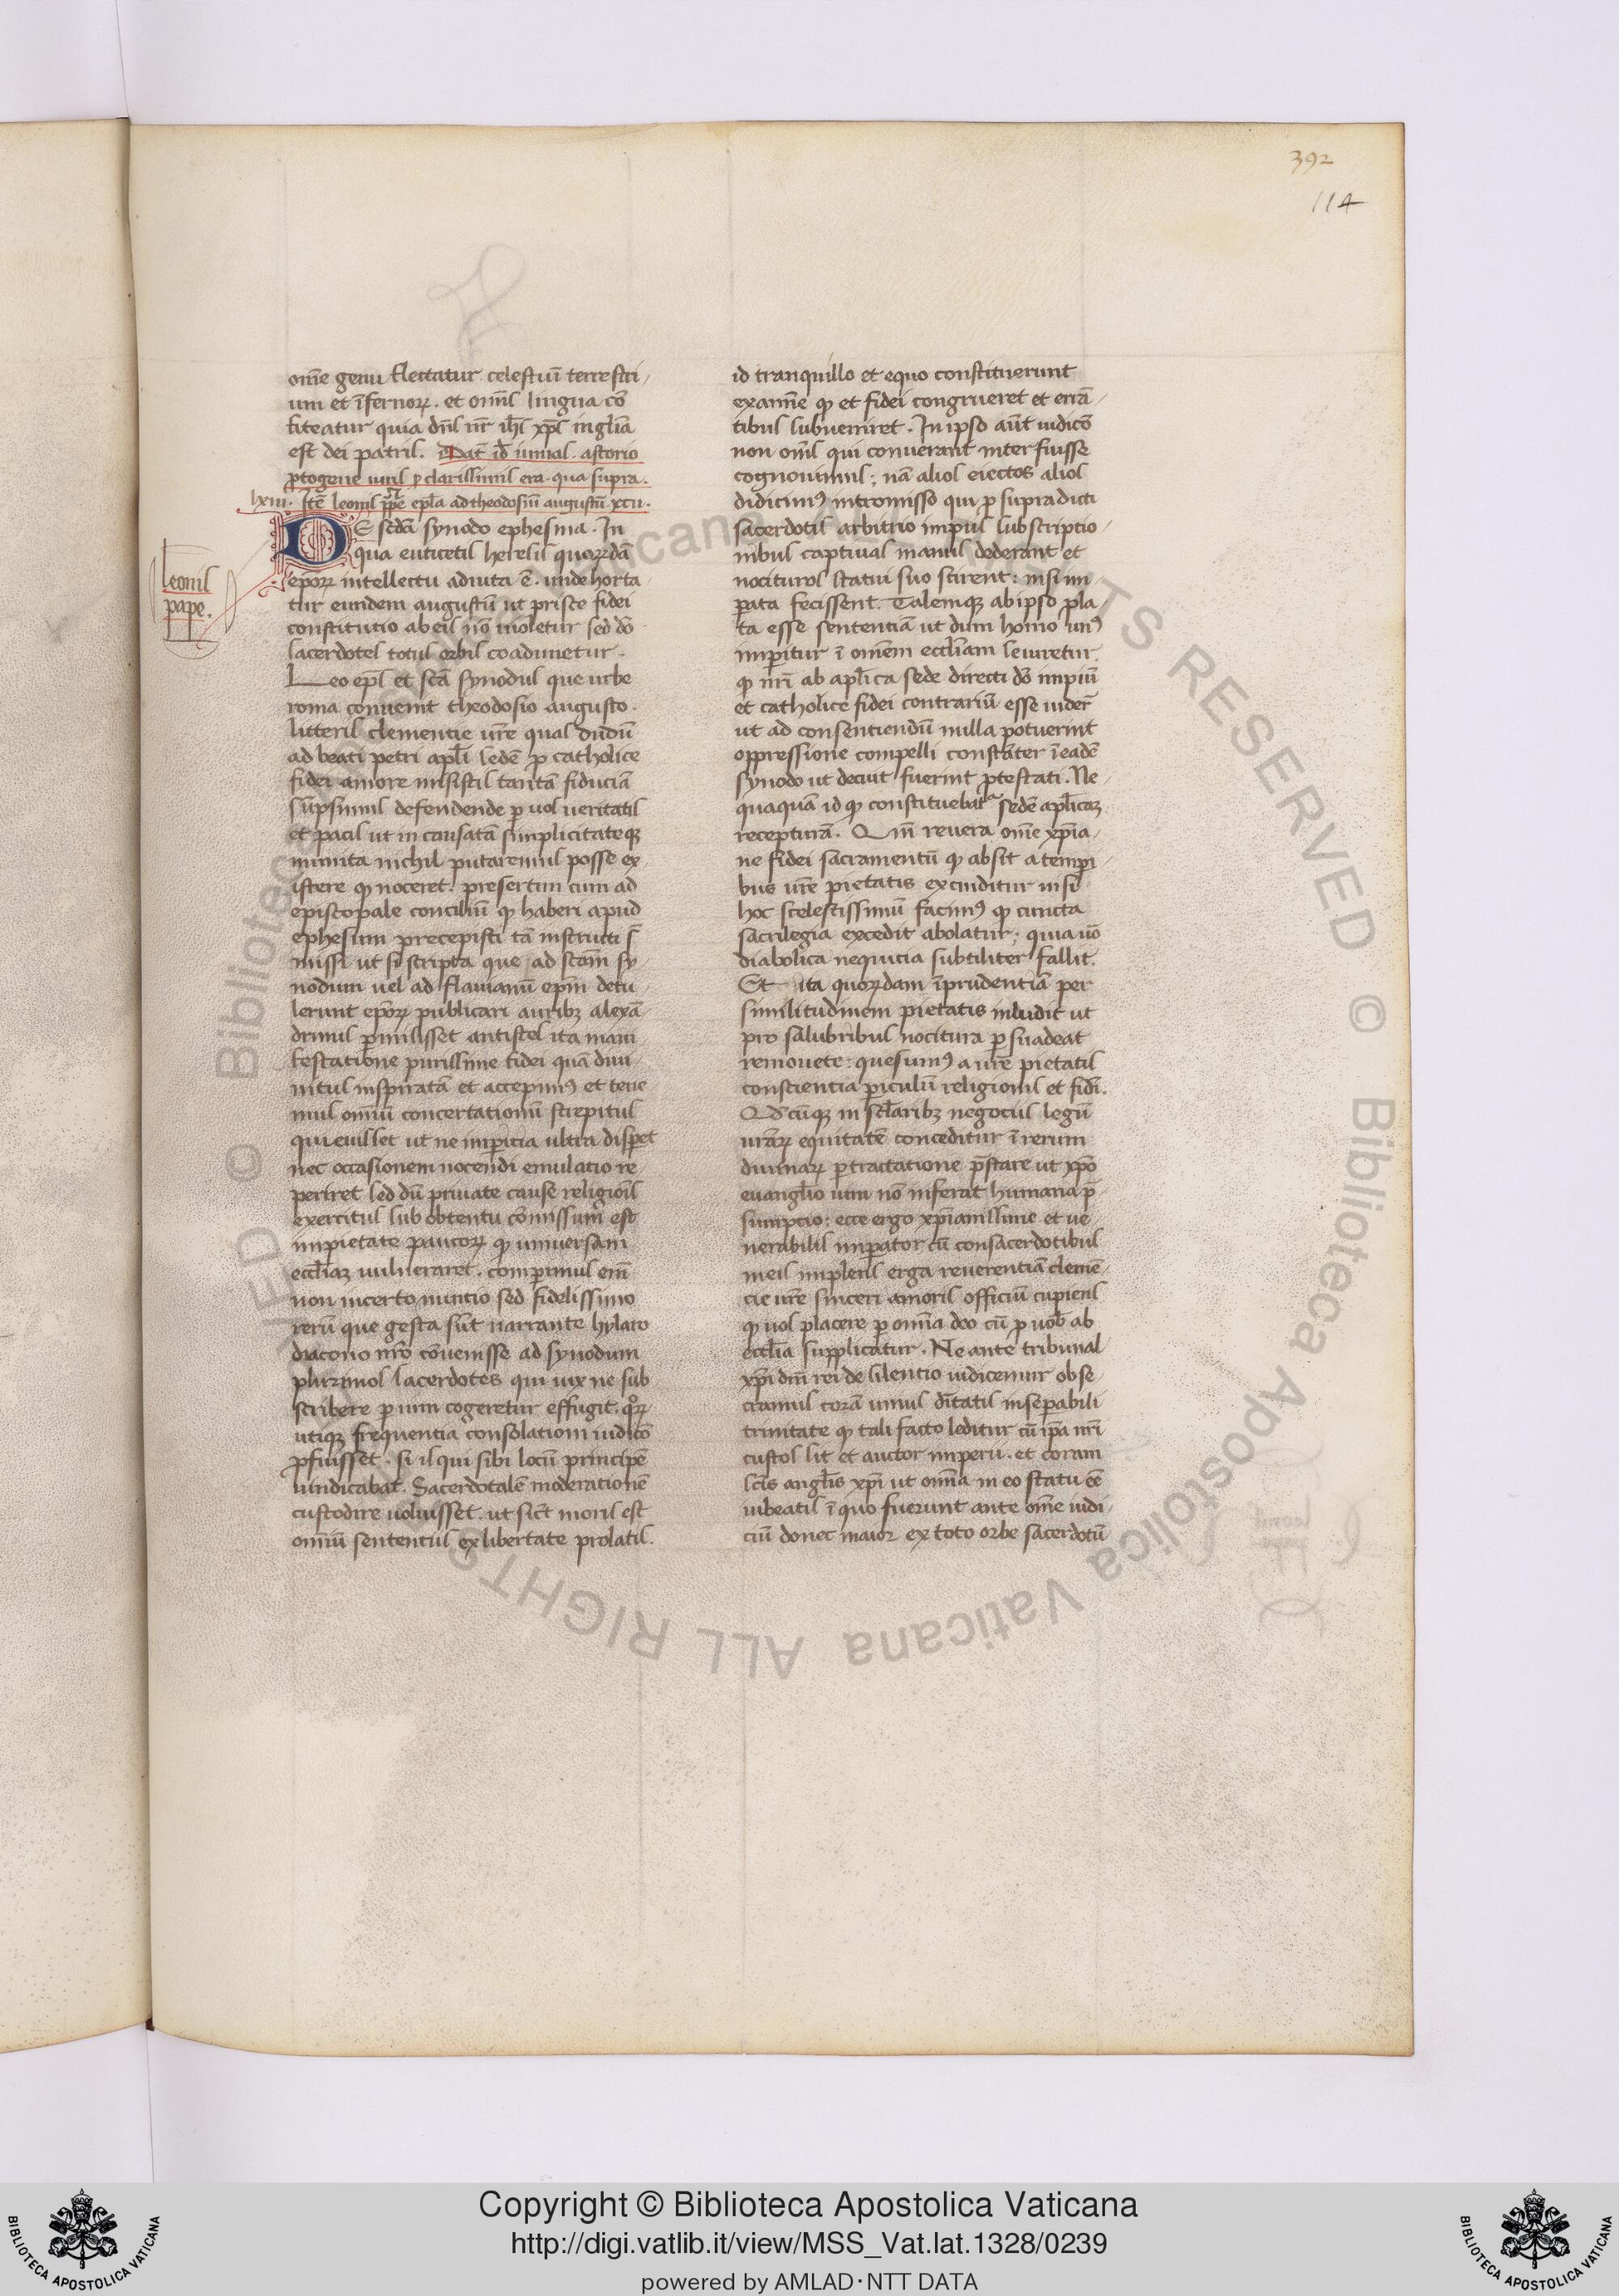 392
114
om̄e genu flectatur celestiū terrestri
um et īfernoꝝ. et om̄is lingua cō
fiteatur quia dn̄s nr̄ ih̄s xp̄s in gl̄ia
est dei patris. Dat̄ id iunias. astorio
ꝓtogene uiris clarissimis era. qua supra.
lxiii. Itē leonis pp̄e epl̄a ad theodosiū augustū xcii.
DE sedā synodo ephesina. In
qua euticetis heresis quorꝝdā
ep̄oꝝ intellectu adiuta ē. unde horta
tur eundem augustū ut prisce fidei
leonis
pape.
constitutio ab eis nō uioletur sed dō
sacerdotes totus orbis coadunetur.
Leo ep̄s et sc̄a synodus que urbe
roma conuenit theodosio augusto.
litteris clementie ur̄e quas dudū
ad beati petri apl̄i sedē p catholice
fidei amore misistis tantā fiduciā
sūpsimus defendende p uos ueritatis
et pacis ut in causa tā simplicitateqꝫ
munita nichil putaremus posse ex
istere qꝫ noceret. presertim cum ad
episcopale conciliū qꝫ haberi apud
ephesum precepisti tā instructi sīt
missi ut si scripta que ad sc̄am sy
nodum uel ad flauianū ep̄m detu
lerunt ep̄oꝝ publicari auribꝫ alexā
drinus pmisisset antistes ita mani
festatione purissime fidei quā diui
nitus inspiratā et accepimꝰ et tene
mus om̄iū concertationū strepitus
quieuisset ut ne impericia ultra disperet
nec occasionem nocendi emulatio re
periret sed dū priuate cause religiōis
exercitus sub obtentu cōmissum est
impietate paucoꝝ qꝫ uniuersam
eccl̄iaꝫ uulneraret. comperimus em̄
non incerto nuntio sed fidelissimo
rerū que gesta sūt narrante hylaro
diacono nr̄o cōuenisse ad synodum
plurimos sacerdotes qui uix ne sub
scribere p uim cogeretur effugit. qͦꝝ
utiqꝫ frequentia consolationi iudicō
ꝓfuisset. si is qui sibi locū principē
uindicabat. Sacerdotalē moderationē
custodire uoluisset. ut sic̄t moris est
om̄iū sententiis ex libertate prolatis.
id tranquillo et equo constituerunt
examīe qꝫ et fidei congrueret et errā
tibus subueniret. In ipso aūt iudicō
non om̄is qui conuerant interfuisse
cognouimus; nā alios eiectos alios
didicimꝰ intromisso qui p supradicti
sacerdotis arbitrio impiis subscriptio
nibus captiuas manus dederant et
nocituros statui suo scirent: nisi im
perata fecissent. Talemqꝫ ab ipso pla
ta esse sententiā ut dum homo unꝰ
imperitur ī om̄em eccl̄iam seuiretur
qꝫ nr̄i ab apl̄ica sede directi dō impiū
et catholice fidei contrariū esse uider̄
ut ad consentiendū nulla potuerint
oppressione compelli constāter ī eadē
synodo ut decuit fuerint ꝓtestati. Ne
quaquā id qꝫ constituebat͛ sedē apl̄icaꝫ
recepturā. Qm̄ reuera om̄e xp̄ia
ne fidei sacramentū qꝫ absit a tempi
bus ur̄e pietatis exciditur nisi
hoc scelestissimū facinꝰ qꝫ cuncta
sacrilegia excedit abolatur; quia uō
diabolica nequicia subtiliter fallit.
Et ita quorꝝdam īprudentiā per
similitudinem pietatis inludit ut
pro salubribus nocitura p suadeat
remouete: quesumꝰ a ur̄e pietatis
conscientia piculū religionis et fidi.
Qd̄cūqꝫ in sc̄laribꝫ negociis legū
ur̄aꝝ equitatē conceditur ī rerum
diuinaꝝ ptractatione p̄stare ut xp̄o
euangl̄io uim nō inferat humana p̄
sumptio: ecce ergo xp̄ianissime et ue
nerabilis imperator cū consacerdotibus
meis implens erga reuerentiā clemē
cie ur̄e sinceri amoris officiū cupiens
qꝫ uos placere p om̄ia deo cū p uob̄ ab
eccl̄ia supplicatur. Ne ante tribunal
xp̄i dn̄i rei de silentio iudicemur obse
cramus corā unius dītatis inseperabili
trinitate qꝫ tali facto leditur cū ip̄a nr̄i
custos sit et auctor imperii. et coram
sc̄is angl̄is xp̄i ut om̄ia in eo statu eē
iubeatis ī quo fuerunt ante om̄e iudi
ciū donec maior ex toto orbe sacerdotū
Copyright © Biblioteca Apostolica Vaticana
http://digi.vatlib.it/view/MSS_Vat.lat.1328/0239
powered by AMLAD·NTT DATA